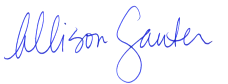 Allison Ganter